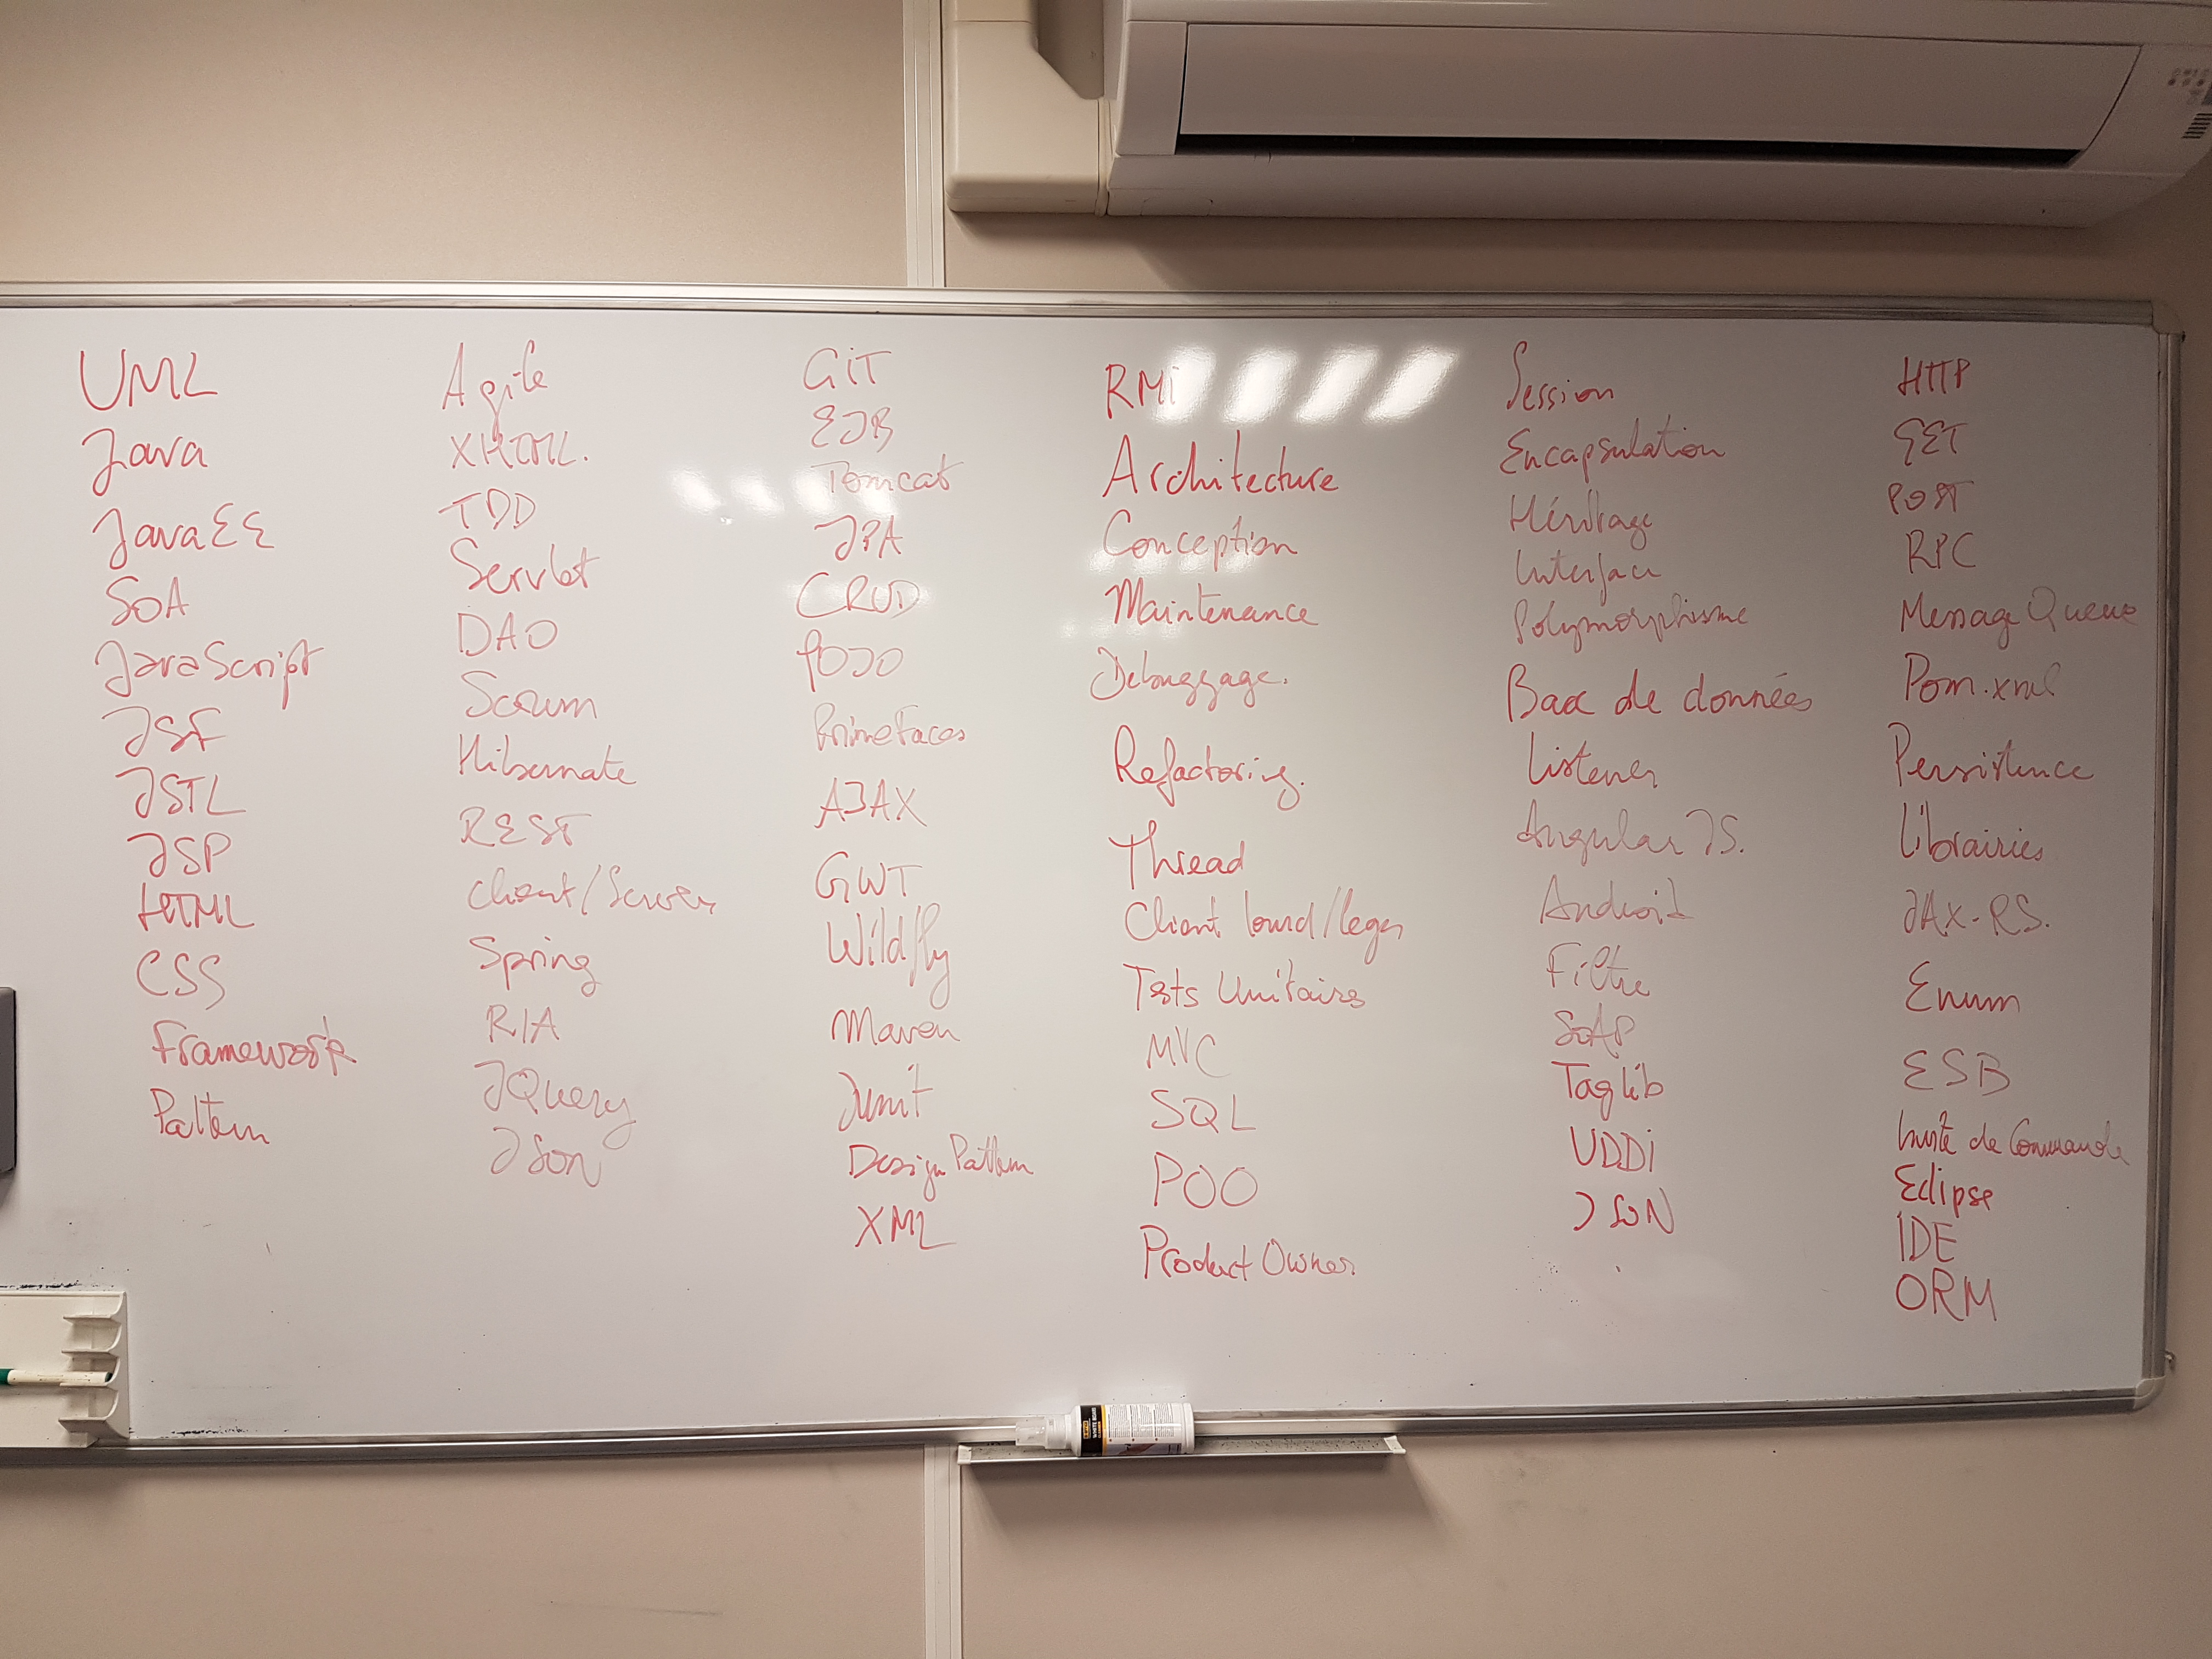 UML
Java
JavaEE
SOA
JavaScript
JSF
JSTL
JSP
HTML
CSS
Framework
Pattern
Agile
XHTML.
TDD
Servlet
DAO
Scrum
Hibernate
REST
Client/Server
Spring
RIA
JQuery
JSON
GiT
EJB
Tomcat
JPA
CRUD
POJO
PrimeFaces
AJAX
GWT
Wildfly
Maven
Junit
Design Pattern
XML
RMi
Architecture
Conception
Maintenance
Debuggage.
Refactoring.
Thread
Client lourd/leger
Tests Unitaires
MVC
SQL
POO
Product Owner
Session
Encapsulation
Héritage
Interface
Polymorphisme
Base de données
Listener
Angular JS.
Android
Filtre
SOAP
Taglib
UDDi
JSON
HTTP
GET
POST
RPC
Message Queue
Pom.xml
Persistence
Librairies
JAX-RS.
Enum
ESB
Invite de Commande
Eclipse
IDE
ORM
WHITE BOARD